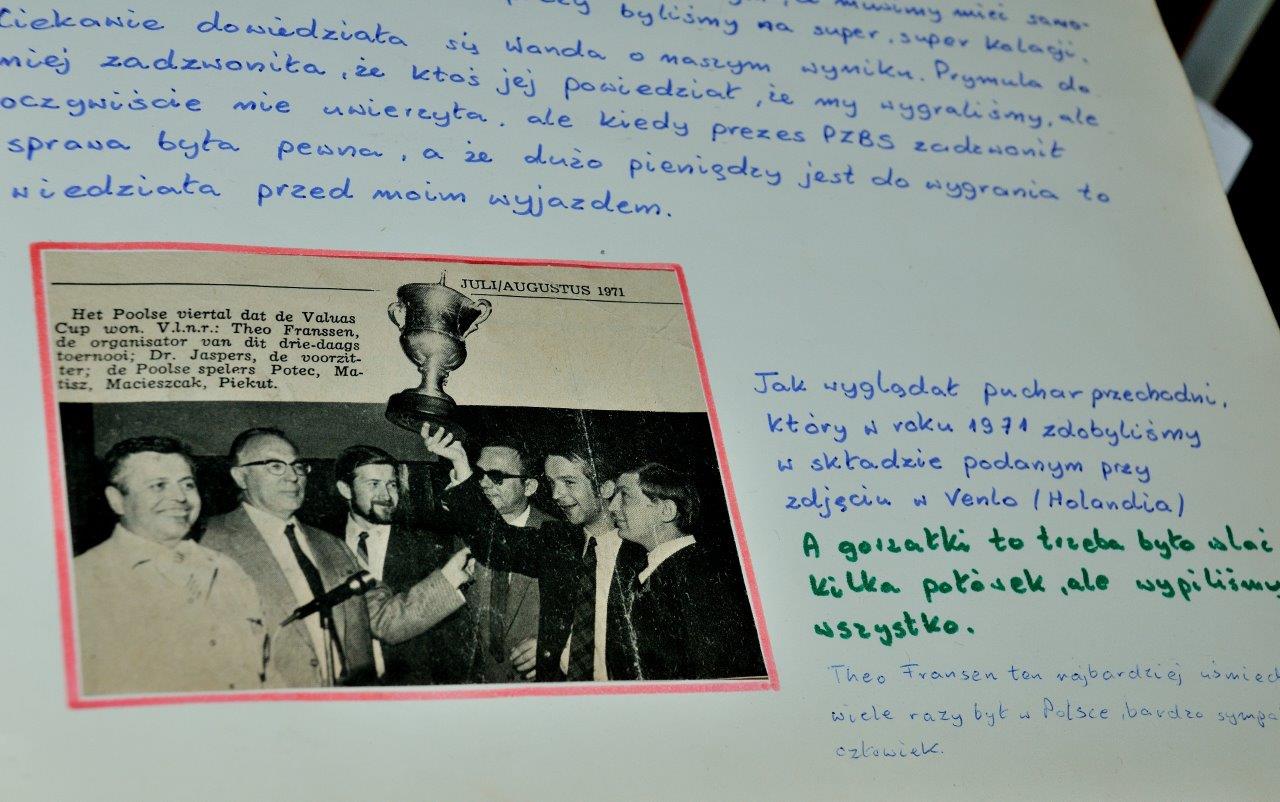 byliśmy na super, super kolacji.
Ciekawie dowiedziała się Wanda o naszym wyniku. Prymula do
niej zadzwoniła, że ktoś jej powiedział, że my wygraliśmy, ale
oczywiście nie uwierzyła. ale kiedy prezes PZBS zadzwonił
sprawa była pewna, a że dużo pieniędzy jest do wygrania to
wiedziała przed moim wyjazdem.
JULI/AUGUSTUS 1971
Het Poolse viertal dat de Valuas
Cup won. V.l.n.r.: Theo Franssen,
de organisator van dit drie-daags
toernooi; Dr. Jaspers, de voorzit-
ter; de Poolse spelers Potec, Ma-
tisz, Macieszcak, Piekut.
Jak wyglądał puchar przechodni,
który w roku 1971 zdobyliśmy
w składzie podanym przy
zdjęciu w Venlo (Holandia)
A gorzałki to trzeba było wlać
kilka połówek, ale wypiliśmy
wszystko.
Theo Fransen ten najbardziej uśmiec
wiele razy był w Polsce, bardzo sympa
człowiek.